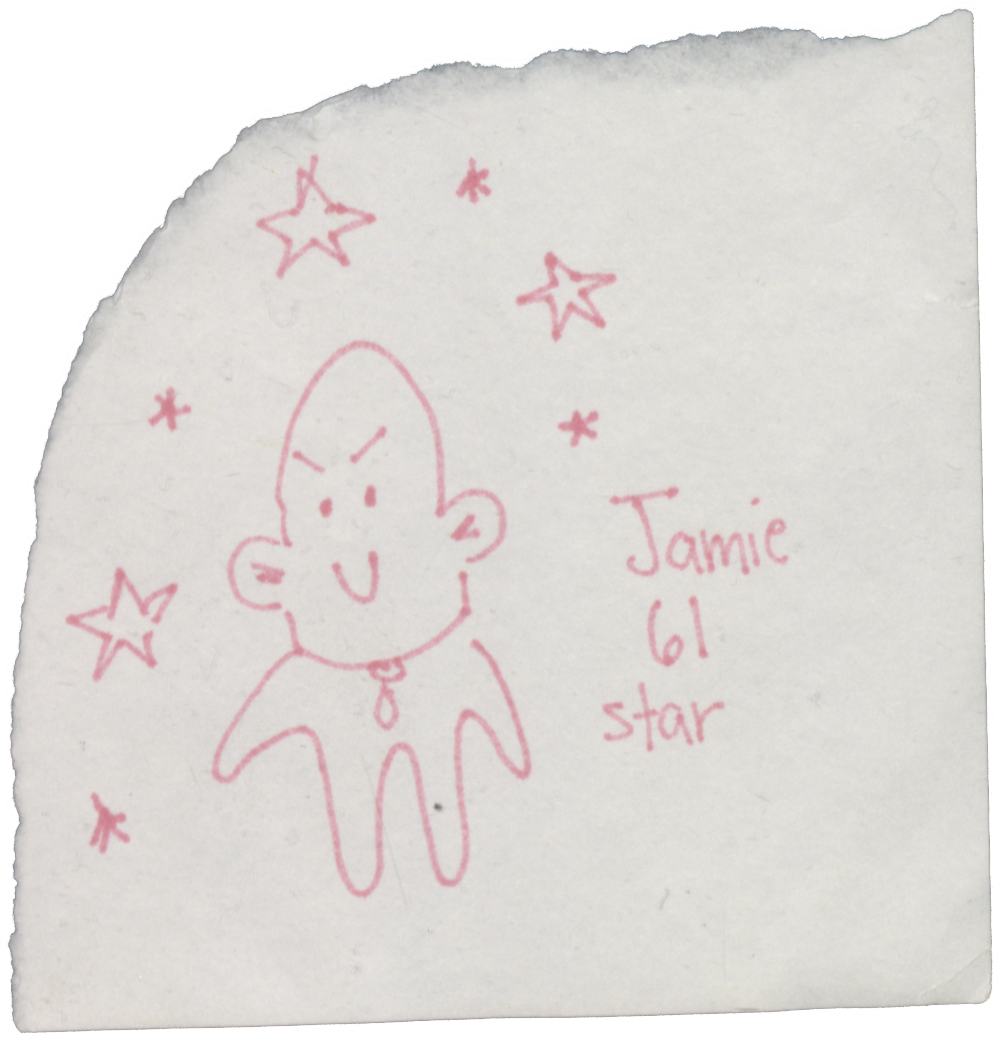 Jamie
61
star